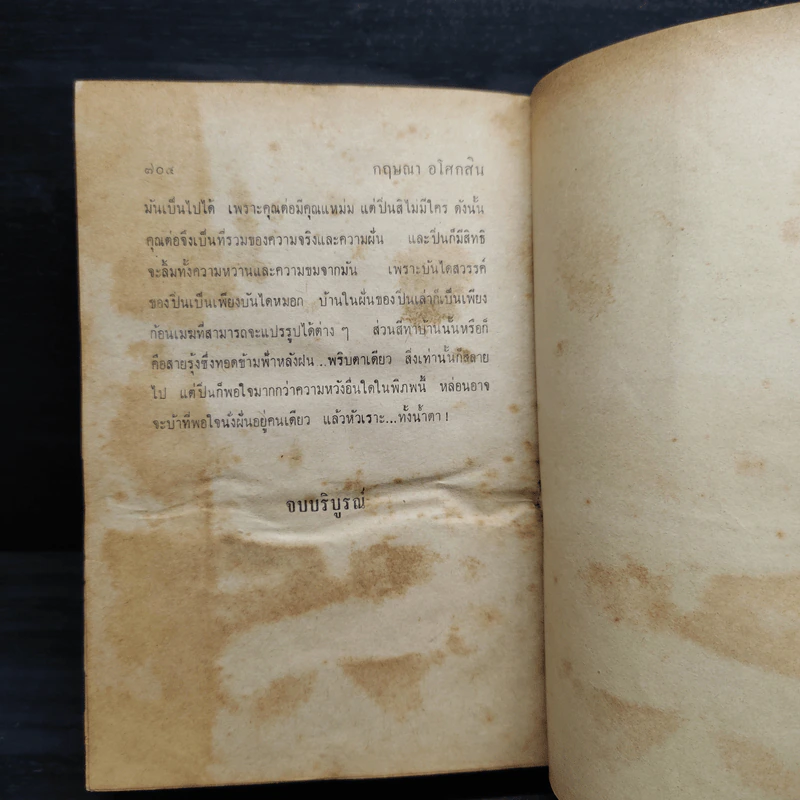 ๗๐๔ กฤษณา อโศกสิน
มันเป็นไปได้ เพราะคุณต่อมีคุณแหม่ม แต่ปิ่นสิไม่มีใคร ดังนั้น
คุณต่อจึงเป็นที่รวมของความจริงและความฝัน และปิ่นก็มีสิทธิ
จะลิ้มทั้งความหวานและความขมจากมัน เพราะบันไดสวรรค์
ของปิ่นเป็นเพียงบันไดหมอก บ้านในฝันของปิ่นเล่าก็เป็นเพียง
ก้อนเมฆที่สามารถจะแปรรูปได้ต่าง ๆ ส่วนสีทาบ้านนั้นหรือก็
คือสายรุ้งซึ่งทอดข้ามฟ้าหลังฝน..พริบตาเดียว สิ่งเท่านั้นก็สลาย
ไป แต่ปิ่นก็พอใจมากกว่าความหวังอื่นใดในพิภพนี้ หล่อนอาจ
จะบ้าที่พอใจนั่งฝันอยู่คนเดียว แล้วหัวเราะ...ทั้งน้ำตา !
จบบริบูรณ์